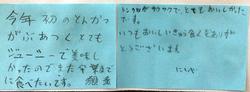 今年初のとんかつ
がぶあつくとても
ジューシーで美味し
かったのでまた卒業まで
に食べたいです。
トンカツがサクサクで、とてもおいしかった
です。
いつもおいしい給食をありが
とうございます